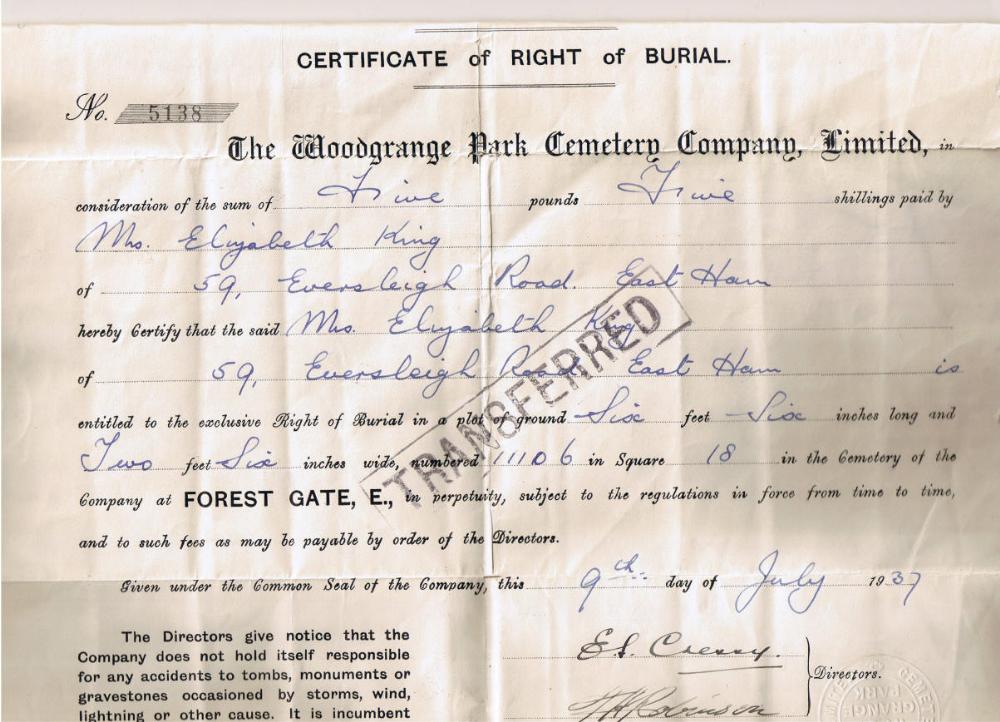 CERTIFICATE of RIGHT of BURIAL.
No. 5138
The Woodgrange Park Cemetery Company, Limited, in
consideration of the sum of Five pounds Five shillings paid by
Mrs. Elizabeth King
of 59, Eversleigh Road. East Ham
hereby Certify that the said Mrs. Elizabeth King
of 59, Eversleigh Road East Ham is
entitled to the exclusive Right of Burial in a plot of ground Six feet Six inches long and
Two feet Six inches wide, numbered 11106 in Square 18 in the Cemetery of the
Company at FOREST GATE, E., in perpetuity, subject to the regulations in force from time to time,
and to such fees as may be payable by order of the Directors.
TRANSFERRED
Given under the Common Seal of the Company, this 9th day of July 1937
The Directors give notice that the
Company does not hold itself responsible
for any accidents to tombs, monuments or
gravestones occasioned by storms, wind,
lightning or other cause. It is incumbent
E.S. Cressy.
Robinson
Directors.